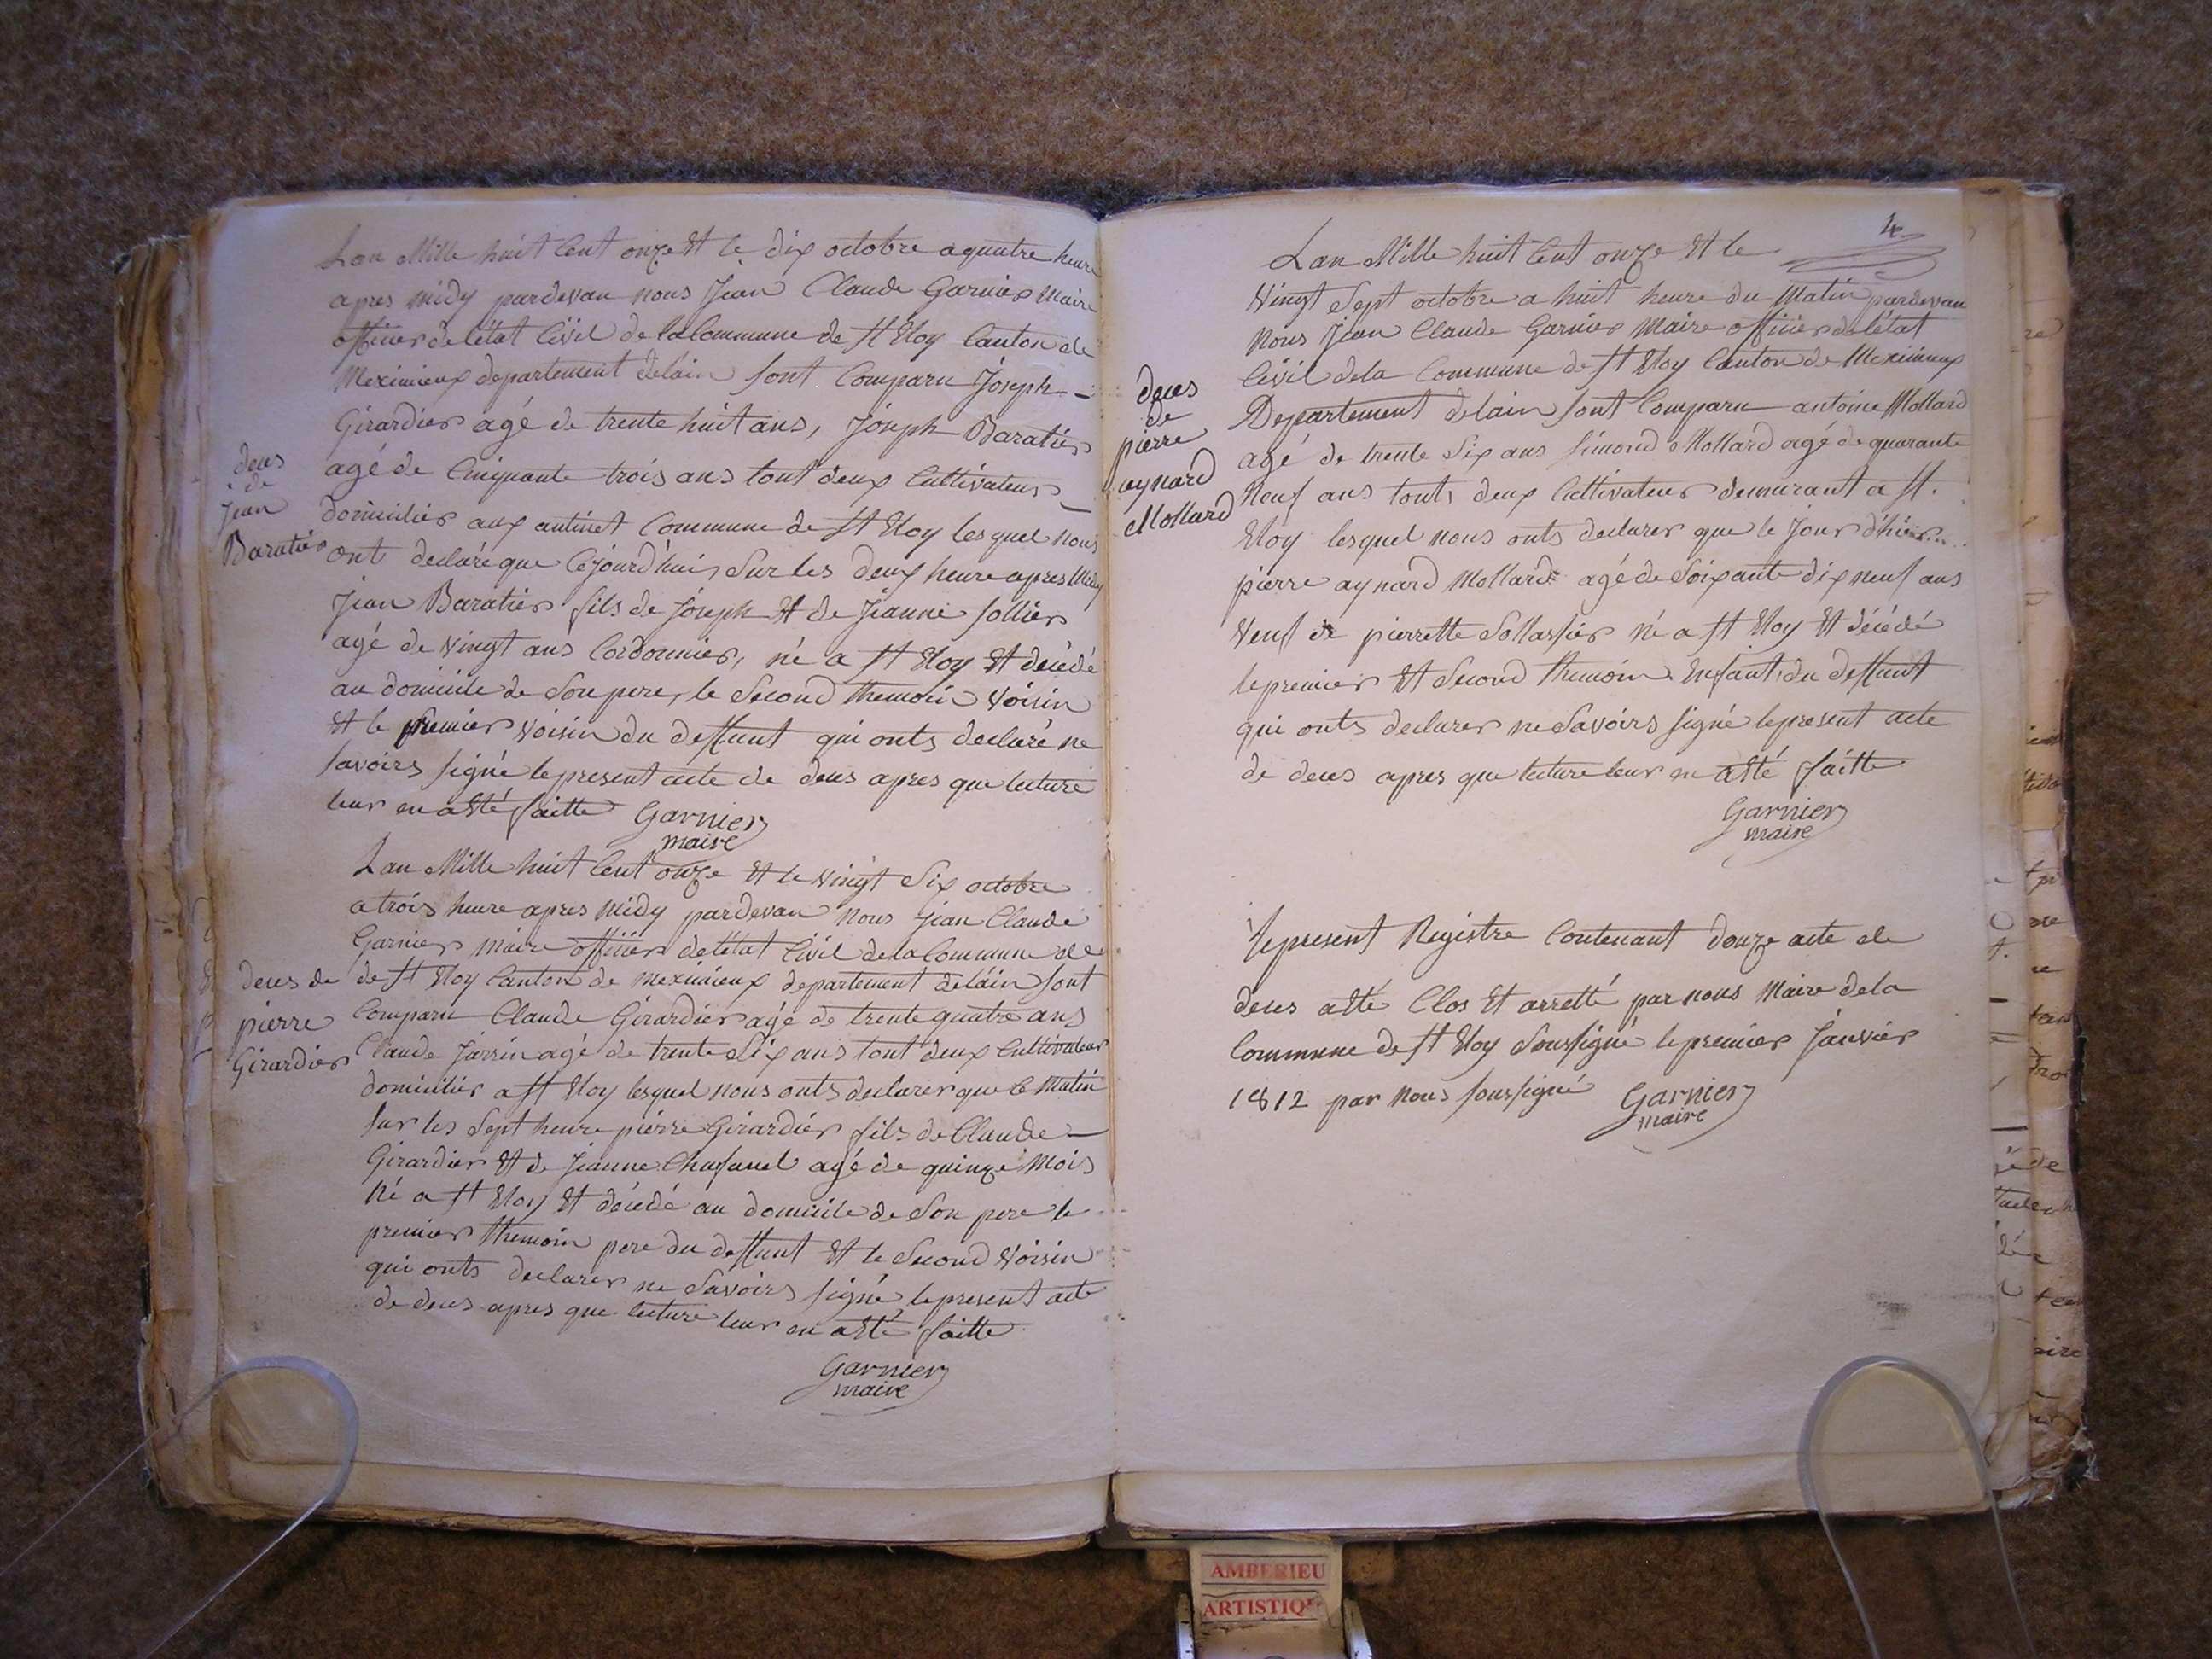 Lan Mille huit Cent onze Et le dix octobre a quatre heure
apres midy pardevan nous Jean Claude Garnier Maire
officier de létat Civil de la Commune de St Eloy Canton de
Meximieux departement delain sont Comparu Joseph
Girardier agé de trente huit ans, Joseph Baratier
agé de Cinquante trois ans tout deux Cultivateur
domicilier aux antinet Commune de St Eloy lesquel nous
ont declaré que Cejourd'hui, Sur les deux heure apres Midy
Jean Baratier fils de Joseph Et de Jeanne sollier
agé de vingt ans Cordonnier, né a St Eloy Et decédé
au domicile de Son pere, le Second themoin Voisin
Et le premier Voisin du deffunt qui onts declaré ne
savoirs signé lepresent acte de deces apres que lecture
leur en a Eté faitte Garnier
maire
deces
de
Jean
Baratier
Lan Mille huit Cent onze Et le Vingt Six octobre
a trois heure apres Midy pardevan nous Jean Claude
Garnier Maire officier de létat Civil de la Commune de
de St Eloy Canton de Meximieux departement delain sont
Comparu Claude Girardier agé de trente quatre ans
Claude Jarrin agé de trente Six ans tout deux Cultivateur
domicilier a St Eloy lesquel nous onts declarer que Ce Matin
sur les Sept heure pierre Girardier fils de Claude
Girardier Et de Jeanne Chafanel agé de quinze Mois
Né a St Eloy Et décédé au domicile de Son pere le
premier themoin pere du deffunt Et le Second Voisin
qui onts declarer ne Savoirs signé lepresent acte
de deces apres que lecture leur en a Eté faitte
Garnier
maire
deces de
pierre
Girardier
4
Lan Mille huit Cent onze Et le
Vingt Sept octobre a huit heure du Matin pardevan
Nous Jean Claude Garnier Maire officier de létat
Civil de la Commune de St Eloy Canton de Meximieux
Departement delain sont Comparu antoine Mollard
agé de trente Six ans Simond Mollard agé de quarante
Neuf ans touts deux Cultivateur demurant a St.
Eloy lesquel nous onts declarer que le Jour d'hier
pierre aynard Mollard agé de Soixante dix neuf ans
Veuf de pierrette Sollassier né a St Eloy Et décédé
le premier Et Second themoin Enfant du deffunt
qui onts declarer ne Savoirs signé lepresent acte
de deces apres que lecture leur en a Eté faitte
Garnier
maire
deces
de
pierre
aynard
Mollard
le present Registre Contenant douze acte de
deces a Eté Clos Et arretté par nous Maire de la
Commune de St Eloy Soussigné le premier Janvier
1812 par nous soussigné Garnier
maire
AMBERIEU
ARTISTIQUE